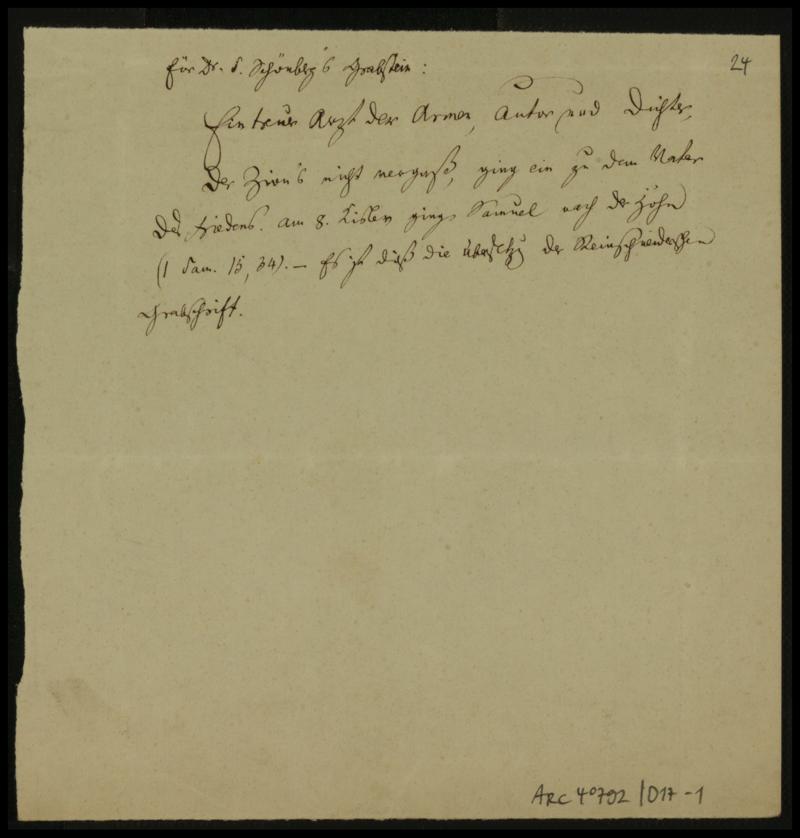 24
Für Dr. S. Schönberg's Grabstein:
Ein treuer Arzt der Armen, Autor und Dichter,
Der Zion's nicht vergaß, ging ein zu dem Vater
des Friedens. Am 8. Kislev ging Samuel nach der Höhe
(1 Sam. 15, 34). – Es ist dieß die Übersetzg der
Grabschrift.
ARC 4°792/D17-1